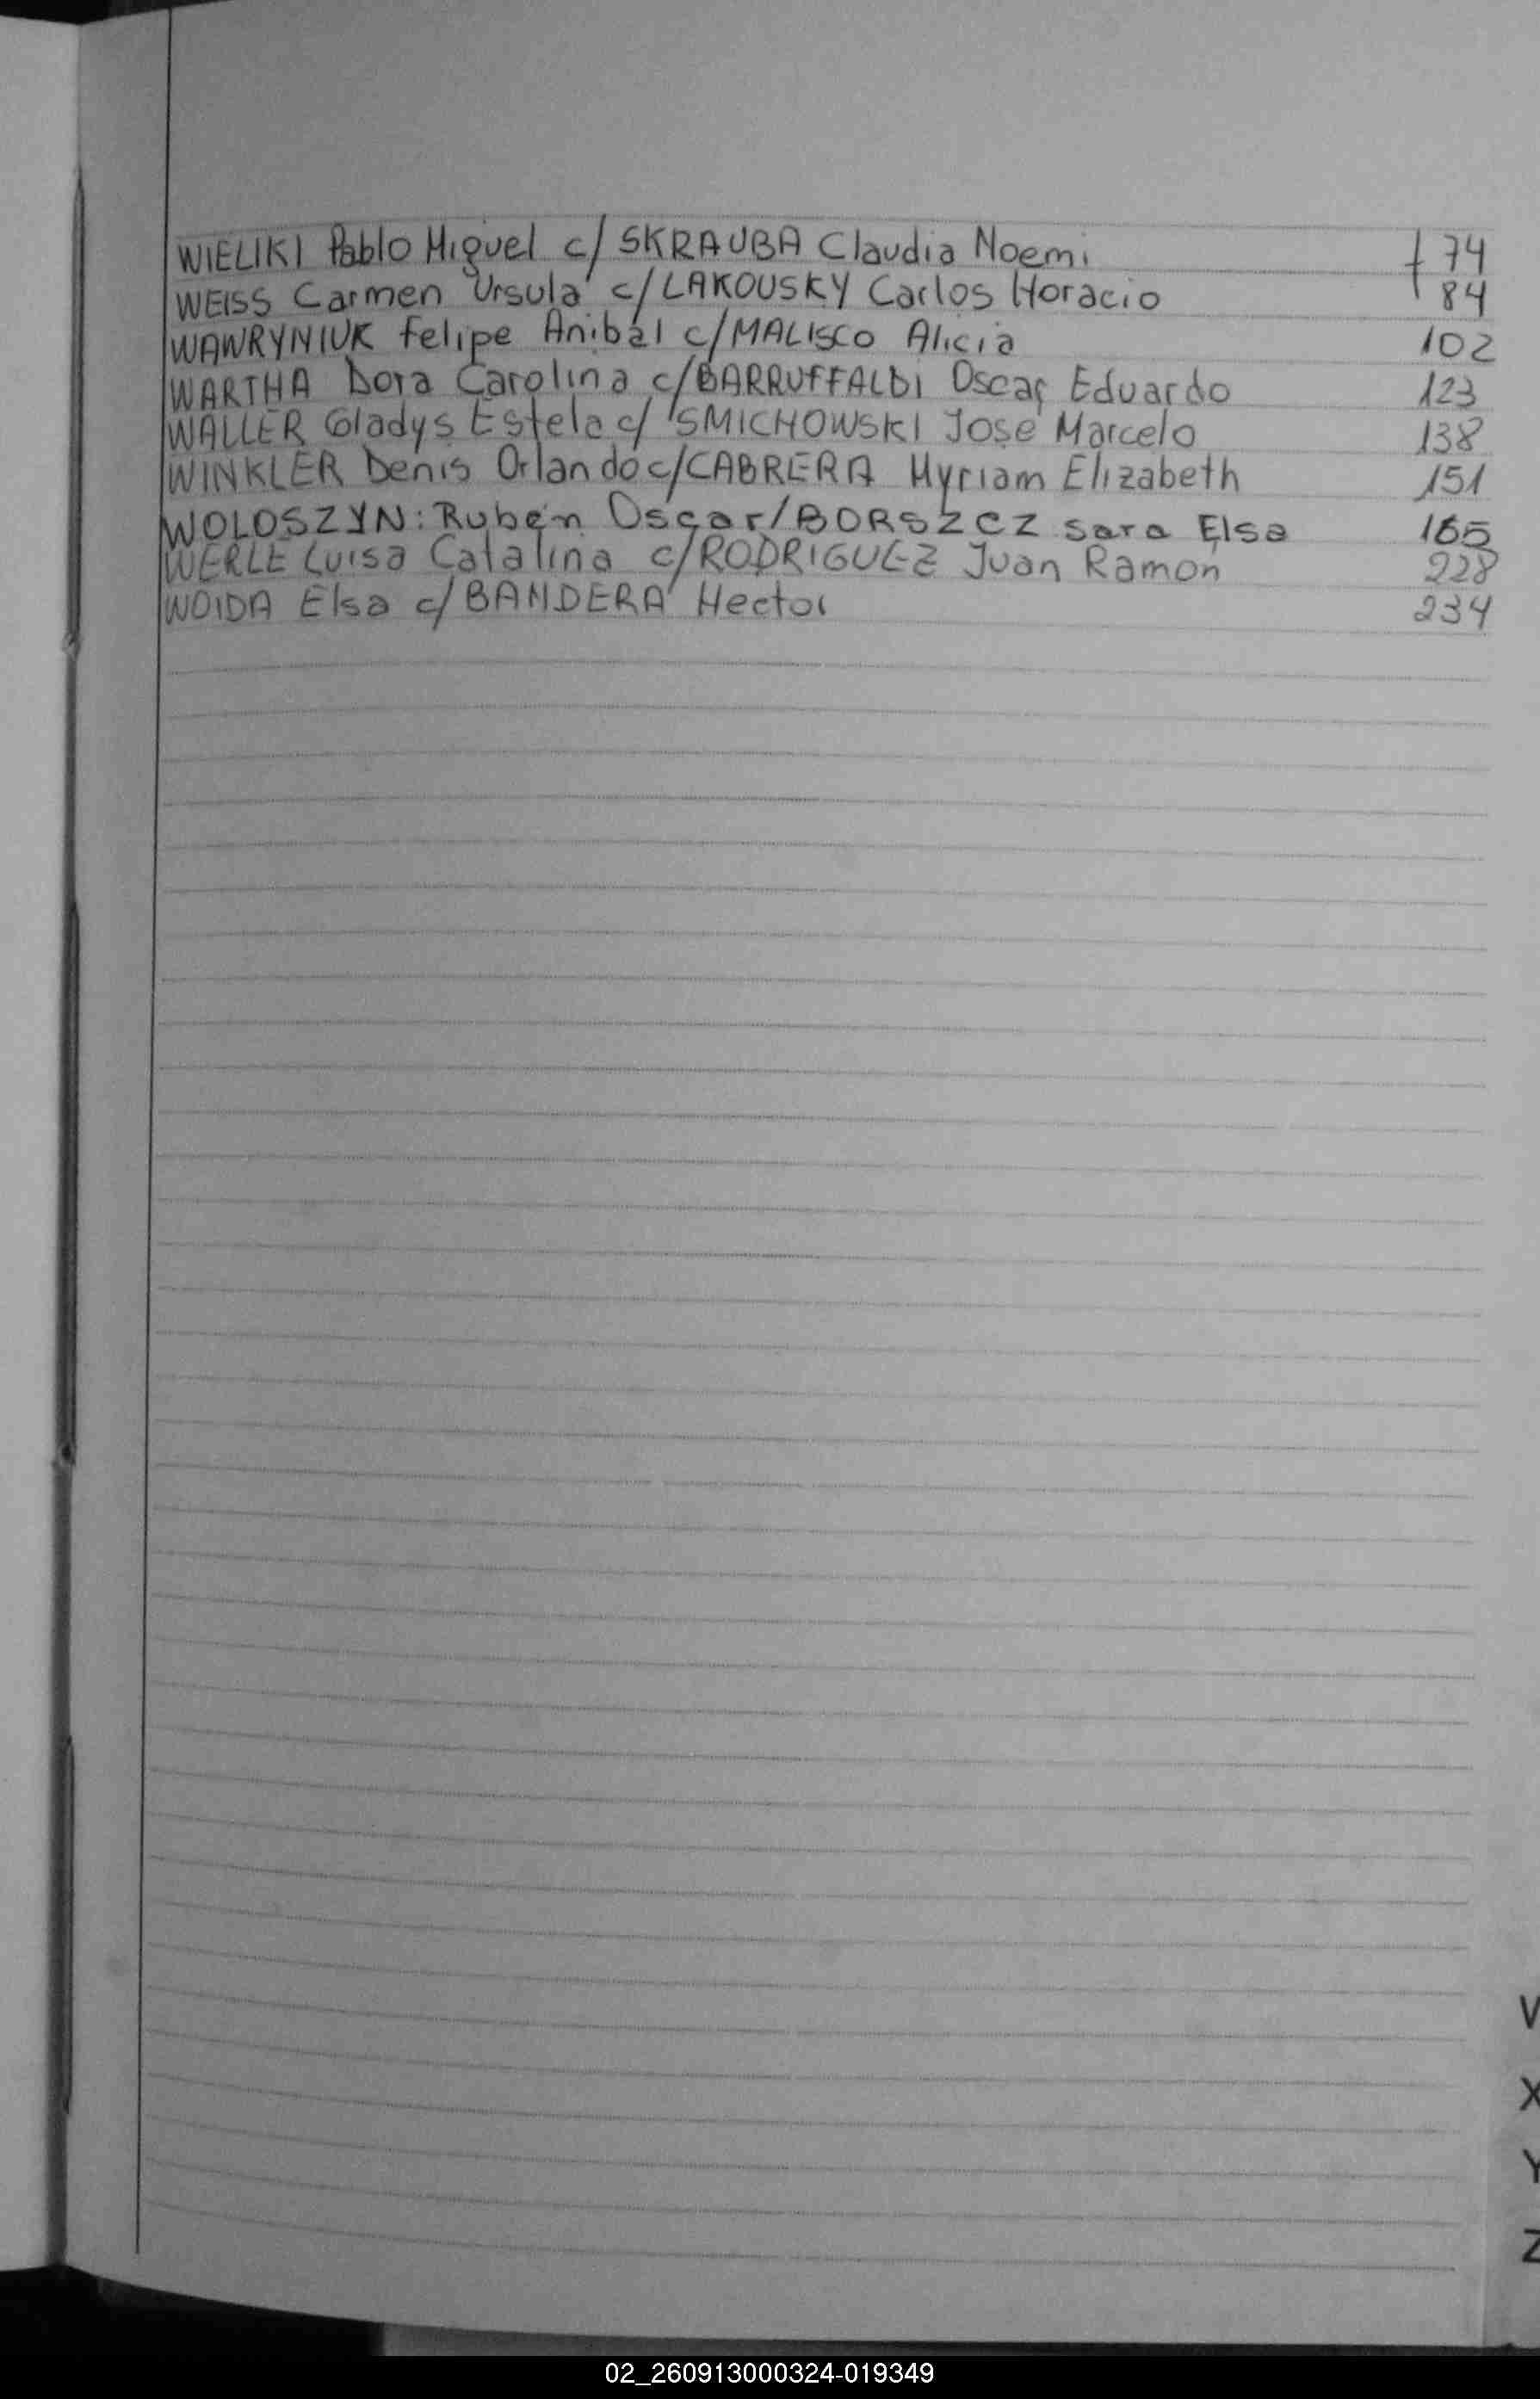 WIELIKI Pablo Miguel c/ SKRAUBA Claudia Noemi 74
WEISS Carmen Ursula c/ LAKOUSKY Carlos Horacio 84
WAWRYNIUK Felipe Anibal c/ MALISCO Alicia 102
WARTHA Dora Carolina c/ BARRUFFALDI Oscar Eduardo 123
WALLER Gladys Estela c/ SMICHOWSKI Jose Marcelo 138
WINKLER Denis Orlando c/ CABRERA Myriam Elizabeth 151
WOLOSZYN: Rubén Oscar/ BORSZCZ Sara Elsa 165
WERLE Luisa Catalina c/ RODRIGUEZ Juan Ramon 228
WOIDA Elsa c/ BANDERA Hector 234
V
X
Y
Z
02_260913000324-019349